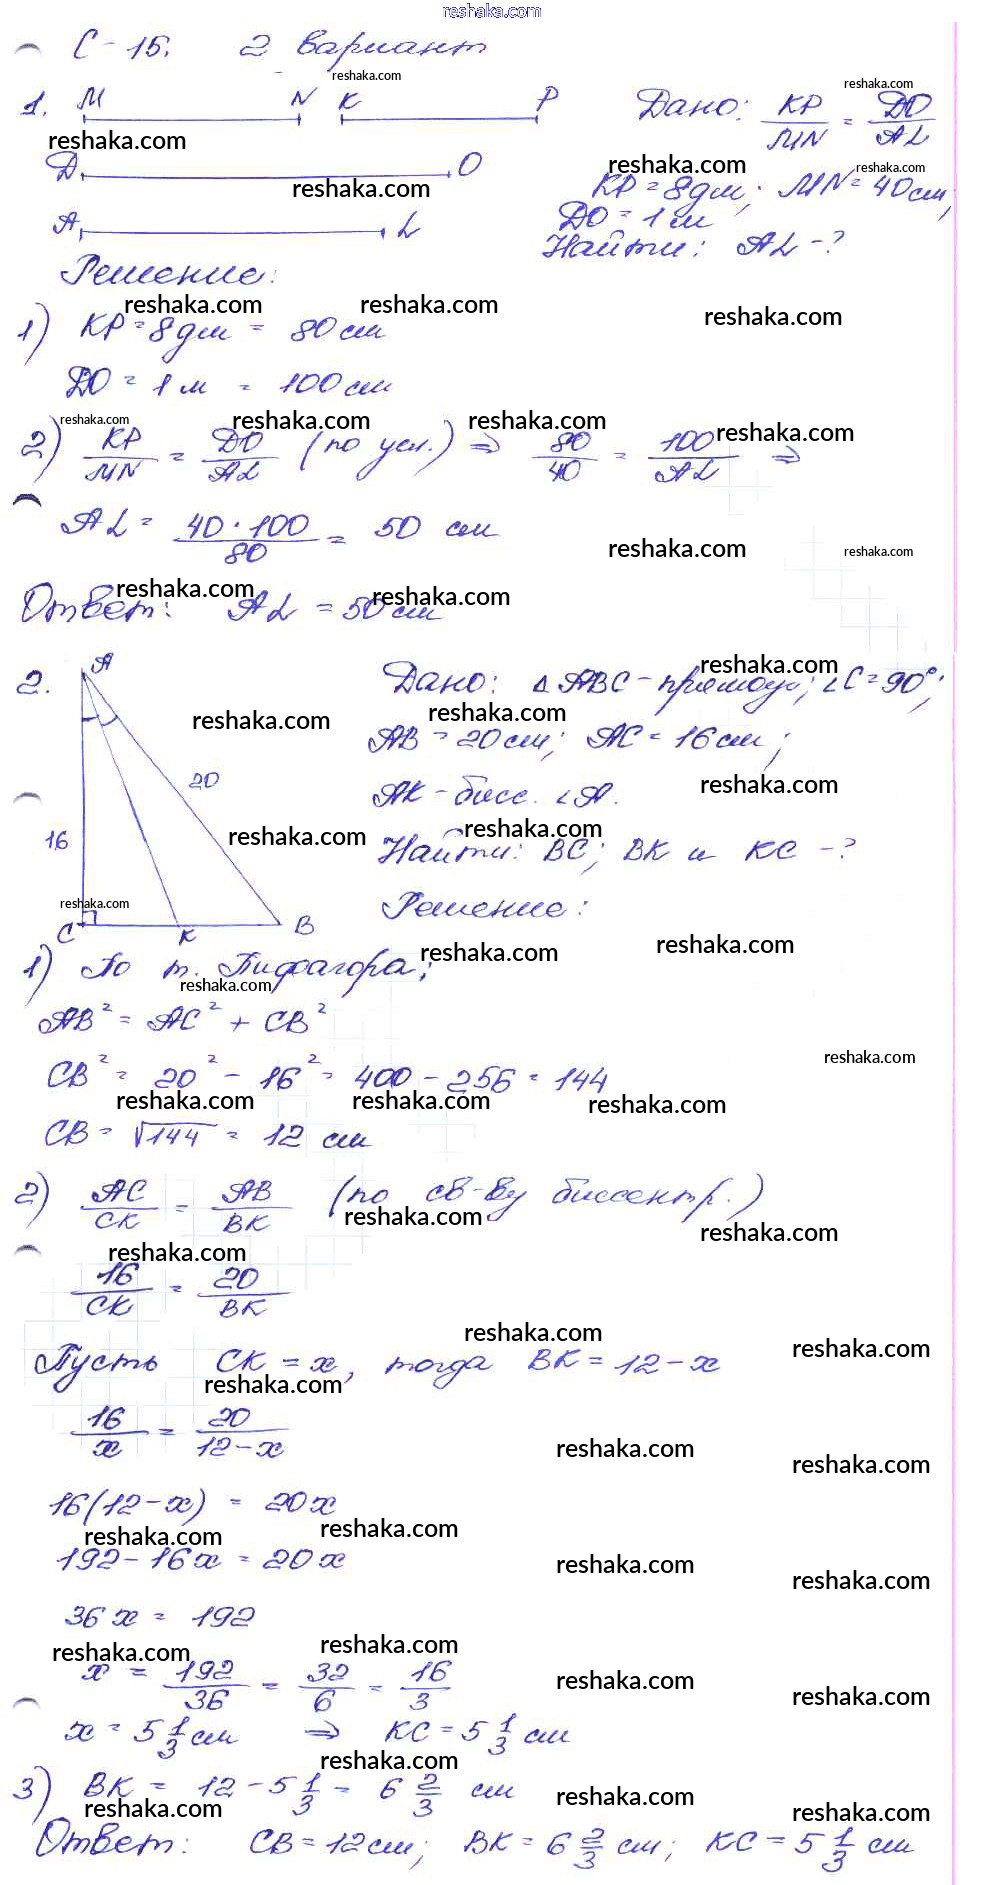 reshaka.com
С-15. 2 вариант
1. M N K P
Дано: KP/MN = DO/AL
D O
KP = 8 дм; MN = 40 см;
DO = 1 м
A L
Найти: AL - ?
Решение:
1) KP = 8 дм = 80 см
DO = 1 м = 100 см
2) KP/MN = DO/AL (по усл.) ⇒ 80/40 = 100/AL ⇒
AL = 40·100/80 = 50 см
Ответ: AL = 50 см
2. A
Дано: △ABC - прямоуг; ∠C = 90°;
AB = 20 см; AC = 16 см;
AK - бисс. ∠A.
20
16
Найти: BC; BK и KC - ?
Решение:
C K B
1) По т. Пифагора;
AB² = AC² + CB²
CB² = 20² - 16² = 400 - 256 = 144
CB = √144 = 12 см
2) AC/CK = AB/BK (по св-ву биссектр.)
16/CK = 20/BK
Пусть CK = x, тогда BK = 12 - x
16/x = 20/12-x
16(12-x) = 20x
192 - 16x = 20x
36x = 192
x = 192/36 = 32/6 = 16/3
x = 5 1/3 см ⇒ KC = 5 1/3 см
3) BK = 12 - 5 1/3 = 6 2/3 см
Ответ: CB = 12 см; BK = 6 2/3 см; KC = 5 1/3 см